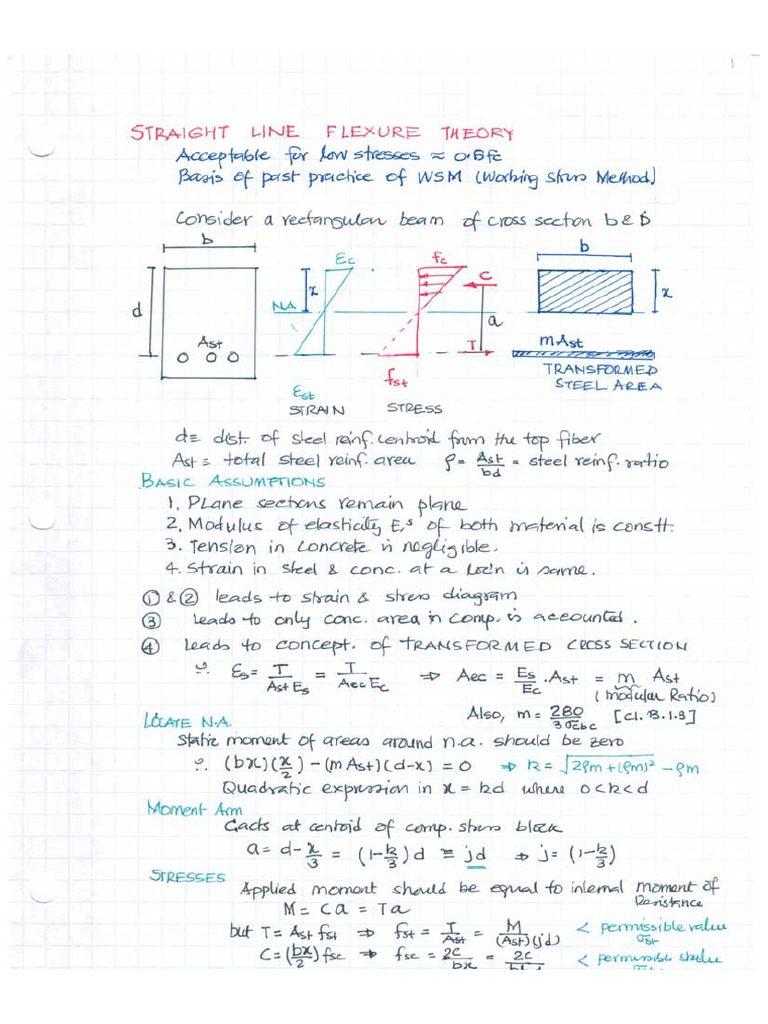 1
STRAIGHT LINE FLEXURE THEORY
Acceptable for low stresses ≈ 0.5fc
Basis of past practice of WSM (Working Stress Method)
Consider a rectangular beam of cross section b & D
b
εc
fc
C
b
x
N.A
d
a
x
Ast
T
mAst
fst
TRANSFORMED
STEEL AREA
εst
STRAIN
STRESS
d = dist. of steel reinf. centroid from the top fiber
Ast = total steel reinf. area ρ = Ast/bd = steel reinf. ratio
BASIC ASSUMPTIONS
1. Plane sections remain plane
2. Modulus of elasticity E's of both material is constt.
3. Tension in concrete is negligible.
4. Strain in steel & conc. at a loc'n is same.
① & ② leads to strain & stress diagram
③ leads to only conc. area in comp. is accounted.
④ leads to concept. of TRANSFORMED CROSS SECTION
∵ εs = T/(Ast Es) = T/(Aec Ec) ⇒ Aec = Es/Ec . Ast = m Ast
(modular Ratio)
Also, m = 280/3σcbc [Cl. B.1.3]
LOCATE N.A.
Static moment of areas around n.a. should be zero
∵ (bx)(x/2) - (mAst)(d-x) = 0 ⇒ k = √(2ρm+(ρm)²) - ρm
Quadratic expression in x = kd where 0<k<d
Moment Arm
C acts at centoid of comp. stress block
a = d - x/3 = (1-k/3)d ≡ jd ⇒ j = (1-k/3)
STRESSES
Applied moment should be equal to internal moment of
Resistance
M = Ca = Ta
but T = Ast fst ⇒ fst = T/Ast = M/(Ast)(jd) < permissible value
σst
C = (bx/2) fsc ⇒ fsc = 2C/bx = 2C < permissible